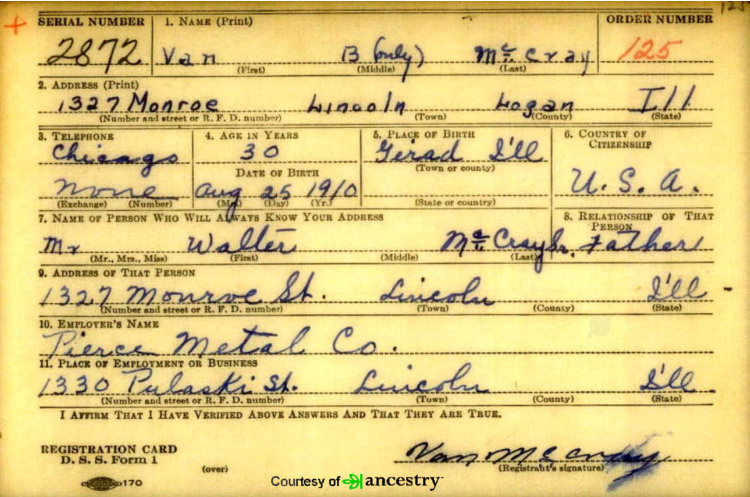 125
SERIAL NUMBER 1. NAME (Print) ORDER NUMBER
2872 Van B (only) McCray 125
(First) (Middle) (Last)
2. ADDRESS (Print)
1327 Monroe Lincoln Logan Ill
(Number and street or R. F. D. number) (Town) (County) (State)
3. TELEPHONE 4. AGE IN YEARS 5. PLACE OF BIRTH 6. COUNTRY OF CITIZENSHIP
Chicago 30 Gerad I'll
(Town or county)
DATE OF BIRTH
none Aug 25 1910 U. S. A.
(Exchange) (Number) (Mo.) (Day) (Yr.) (State or country)
7. NAME OF PERSON WHO WILL ALWAYS KNOW YOUR ADDRESS 8. RELATIONSHIP OF THAT PERSON
Mr Walter McCray Sr. Father
(Mr., Mrs., Miss) (First) (Middle) (Last)
9. ADDRESS OF THAT PERSON
1327 Monroe St. Lincoln I'll
(Number and street or R. F. D. number) (Town) (County) (State)
10. EMPLOYER'S NAME
Pierce Metal Co.
11. PLACE OF EMPLOYMENT OR BUSINESS
1330 Pulaski St. Lincoln I'll
(Number and street or R. F. D. number) (Town) (County) (State)
I AFFIRM THAT I HAVE VERIFIED ABOVE ANSWERS AND THAT THEY ARE TRUE.
REGISTRATION CARD
D. S. S. Form 1 (over) Van McCray
(Registrant's signature)
170
Courtesy of ancestry